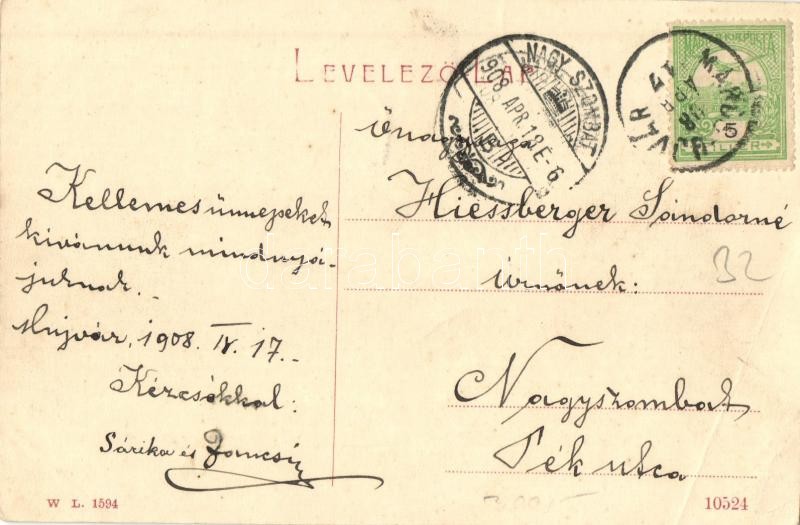 LEVELEZŐ-LAP
NAGY-SZOMBAT
908 APR. 18 E-6
MAGYAR KIR. POSTA
5
FILLÉR
MAROS
UJVÁR
Kellemes ünnepeket
kivánunk mindnyá-
juknak.
Mujvár, 1908. IV. 17.
Kézcsókkal:
Sárika és Jancsi
Önagysága
Hiessberger Sándorné
úrnőnek:
Nagyszombat
Pék utca
32
darabanth
W L. 1594
10524